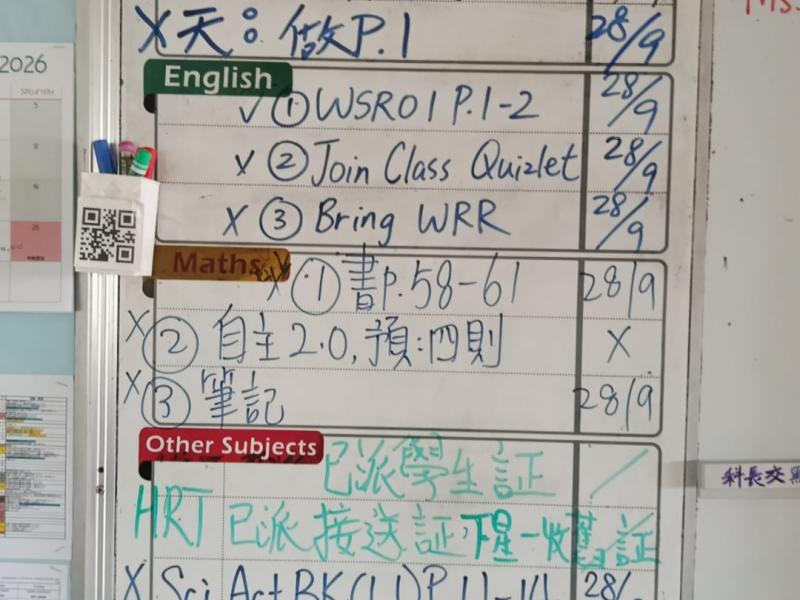 X天：做P.1 28/9
English
✓ ① WSR01 P.1-2 28/9
x ② Join Class Quizlet 28/9
X ③ Bring WRR 28/9
Maths
X ① 書P.58-61 28/9
X ② 自主2.0,預:四則 X
X ③ 筆記 28/9
Other Subjects
已派學生証 /
HRT 已派接送証,下星一收舊証
X Sci Act BK(1.1)P.11-14 28/
2026
SATURDAY
5
12
19
科長交